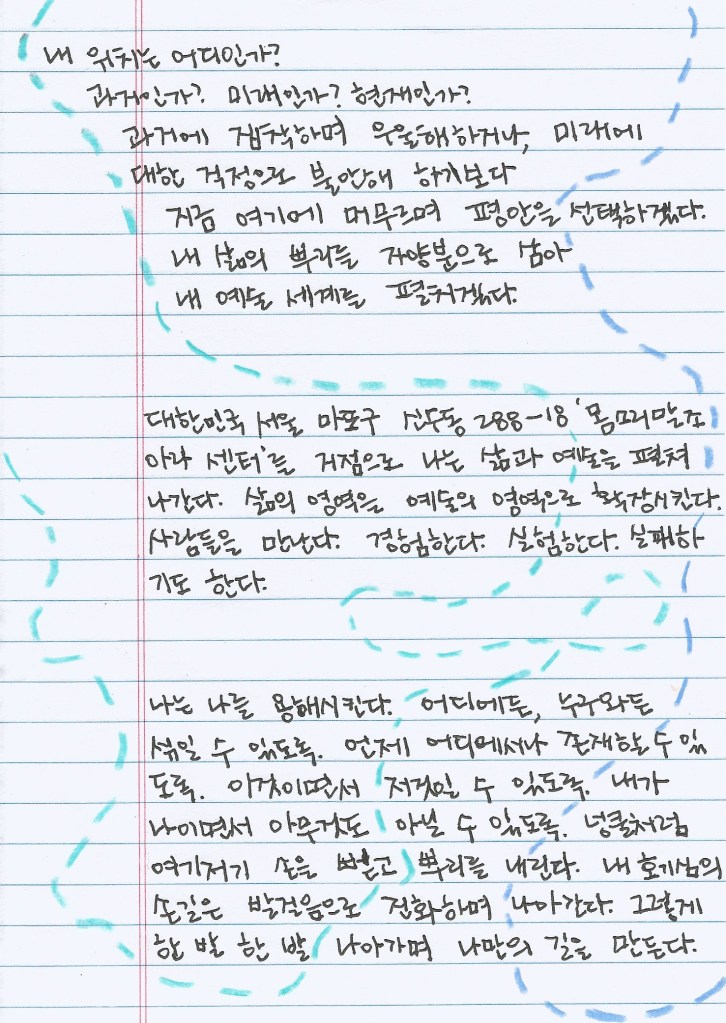 내 위치는 어디인가?
과거인가? 미래인가? 현재인가?
과거에 집착하며 우울해하거나, 미래에
대한 걱정으로 불안해 하기보다
지금 여기에 머무르며 평안을 선택하겠다.
내 삶의 뿌리를 자양분으로 삼아
내 예술 세계를 펼쳐가겠다.
대한민국 서울 마포구 신수동 288-18 '몸소리말조
아라 센터'를 거점으로 나는 삶과 예술을 펼쳐
나간다. 삶의 영역을 예술의 영역으로 확장시킨다.
사람들을 만난다. 경험한다. 실험한다. 실패하
기도 한다.
나는 나를 용해시킨다. 어디에든, 누구와든
섞일 수 있도록. 언제 어디에서나 존재할 수 있
도록. 이것이면서 저것일 수 있도록. 내가
나이면서 아무것도 아닐 수 있도록. 넝쿨처럼
여기저기 손을 뻗고 뿌리를 내린다. 내 호기심의
손길은 발걸음으로 전화하며 나아간다. 그렇게
한 발 한 발 나아가며 나만의 길을 만든다.